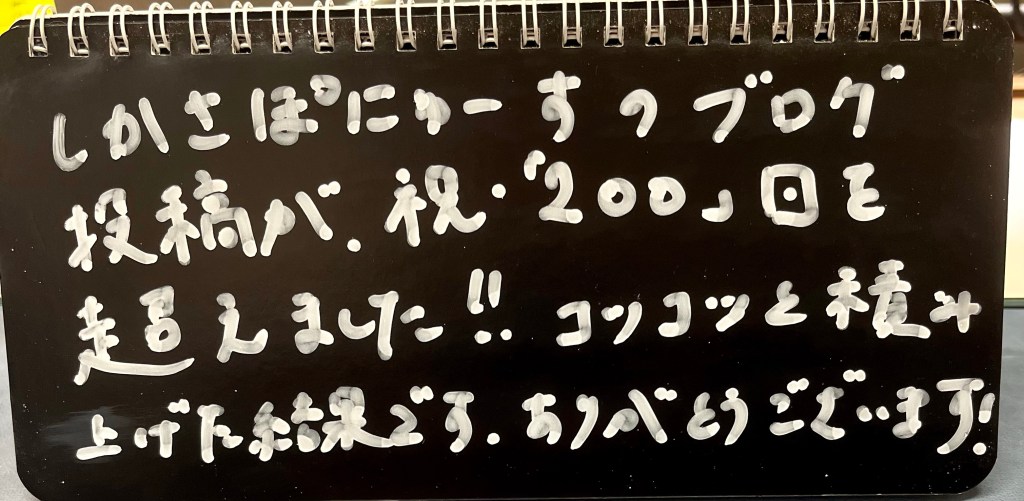 しかさぽにゅーすのブログ
投稿が、祝・「200」回を
超えました!!コツコツと積み
上げた結果です。ありがとうございます!